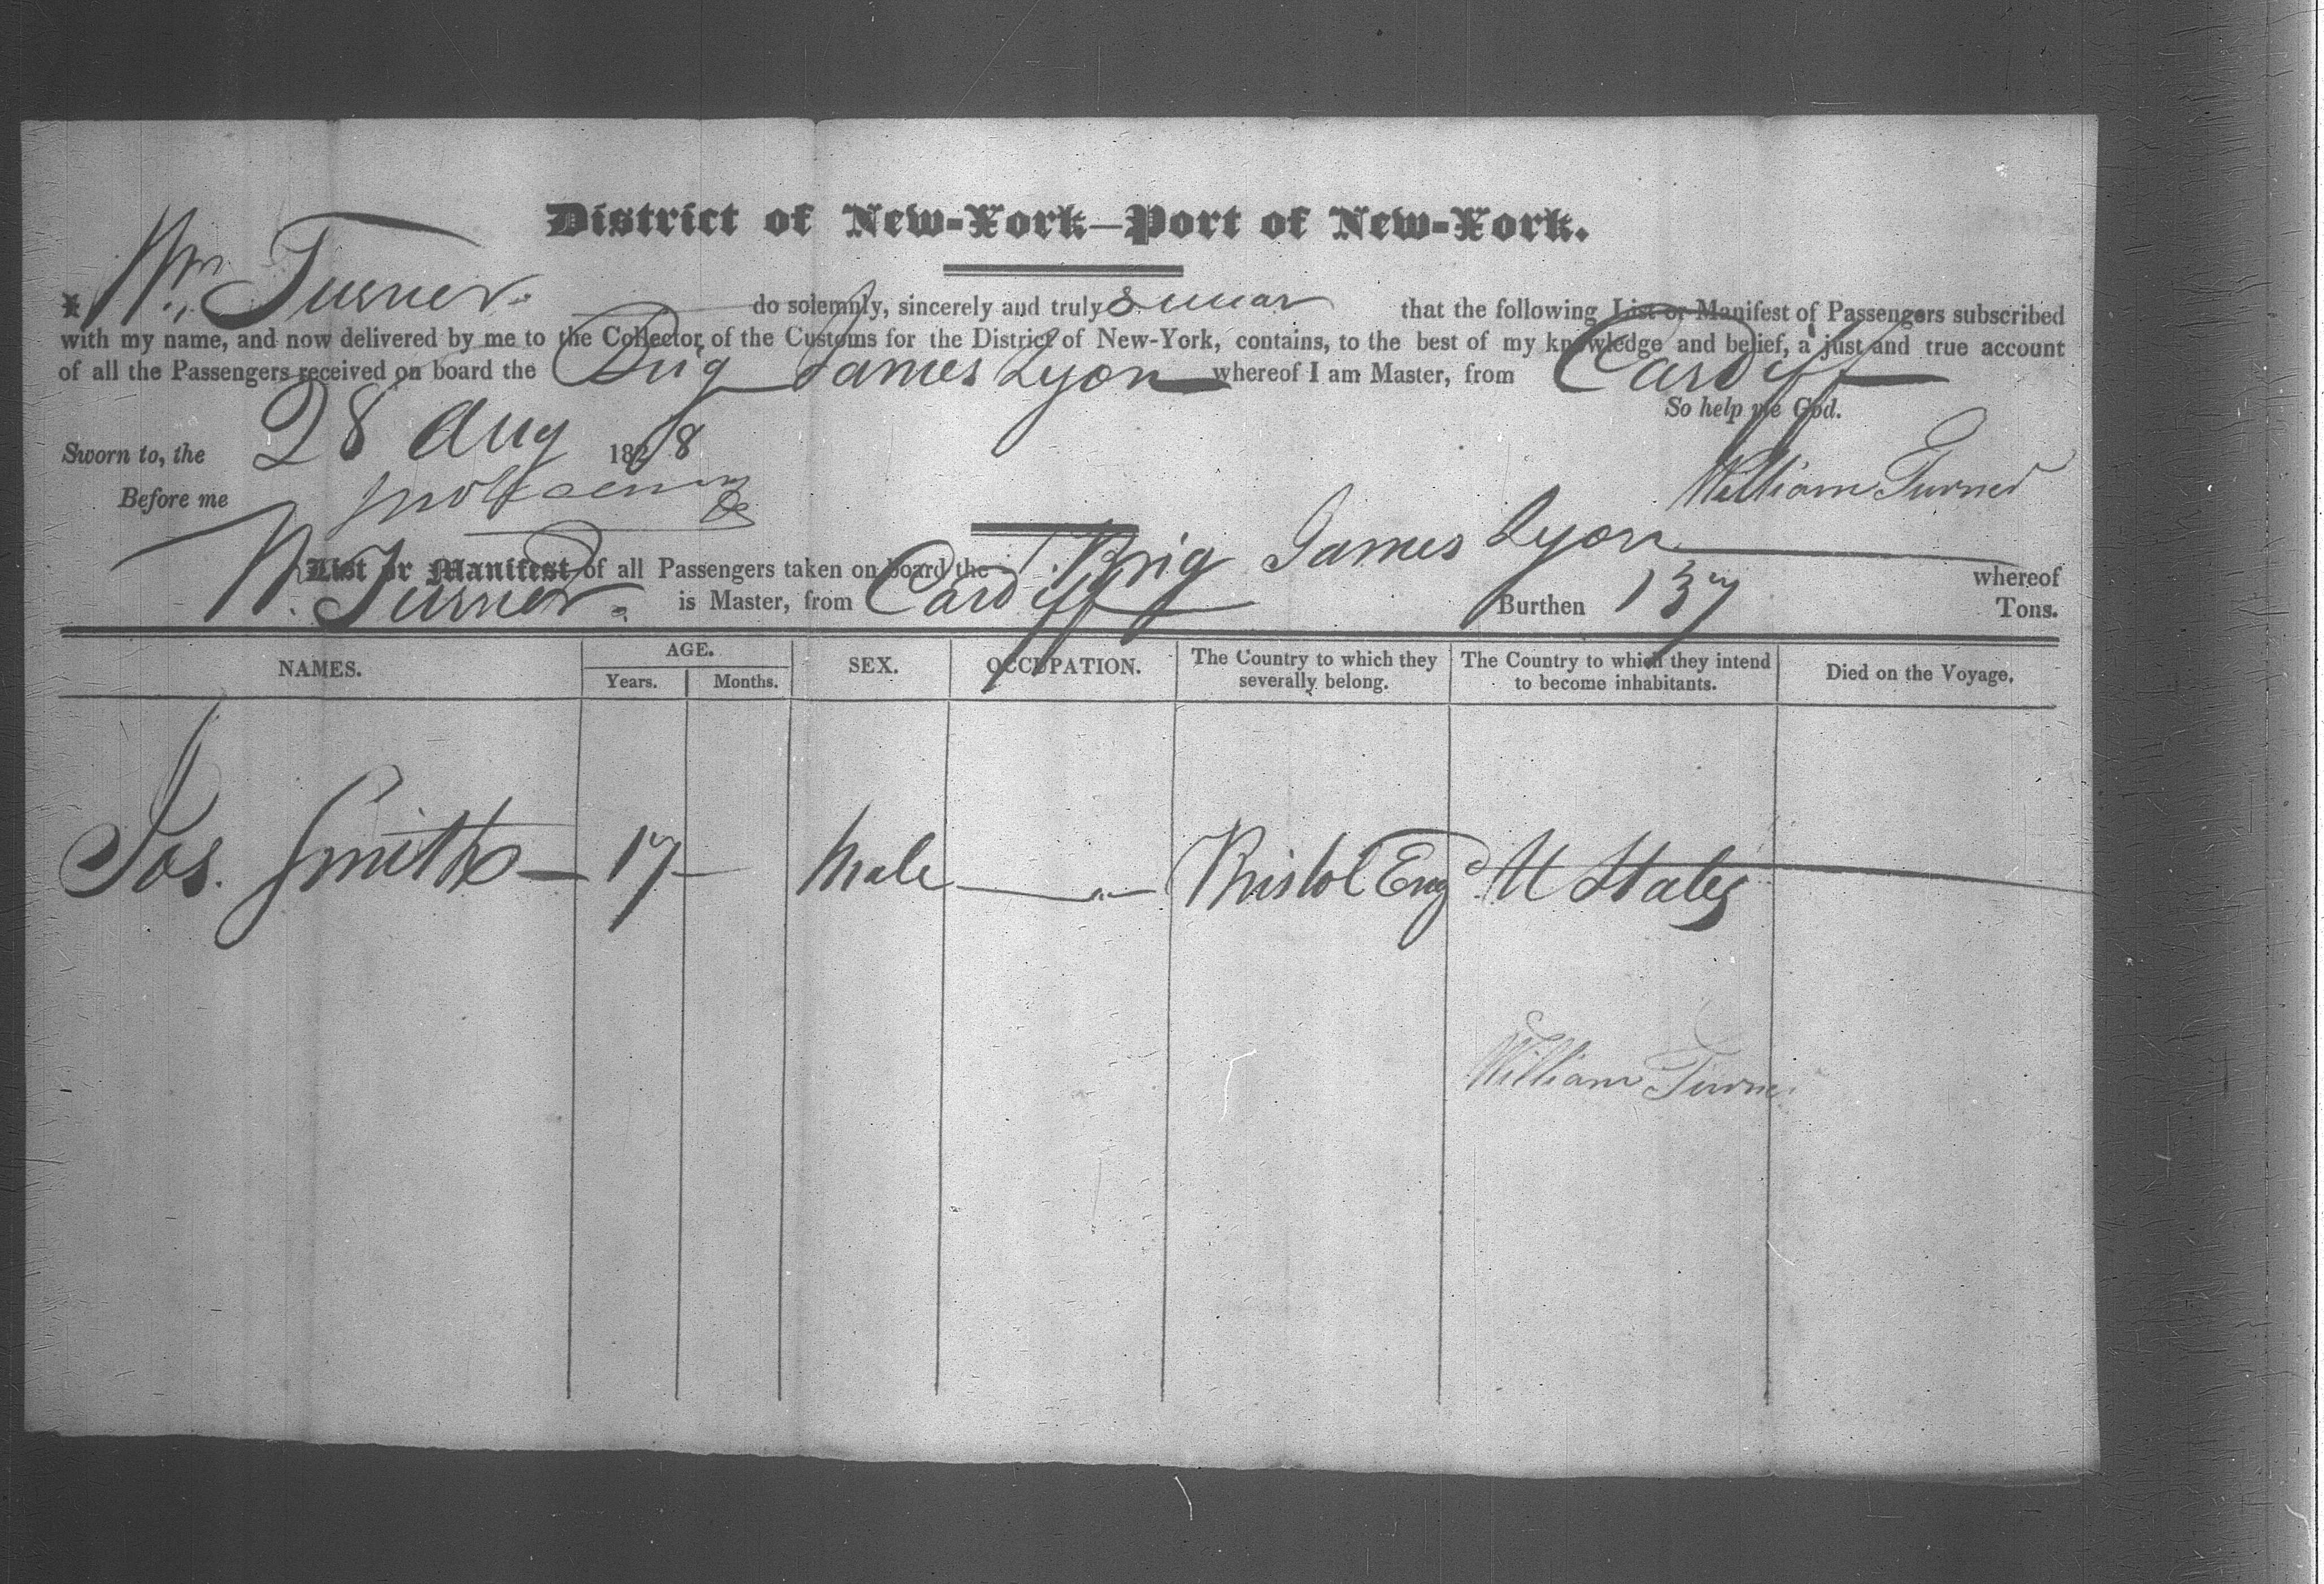 District of New-York—Port of New-York.
I, Wm Turner do solemnly, sincerely and truly swear that the following List or Manifest of Passengers subscribed
with my name, and now delivered by me to the Collector of the Customs for the District of New-York, contains, to the best of my knowledge and belief, a just and true account
of all the Passengers received on board the Brig James Lyon whereof I am Master, from Cardiff
So help me God.
Sworn to, the 28 Aug 1828
Before me
William Turner
List or Manifest of all Passengers taken on board the Brig James Lyon whereof
W. Turner is Master, from Cardiff Burthen 137 Tons.
NAMES. AGE. Years. Months. SEX. OCCUPATION. The Country to which they severally belong. The Country to which they intend to become inhabitants. Died on the Voyage.
Jos. Smith — 17 — Male — " — Bristol Engd U States
William Turner